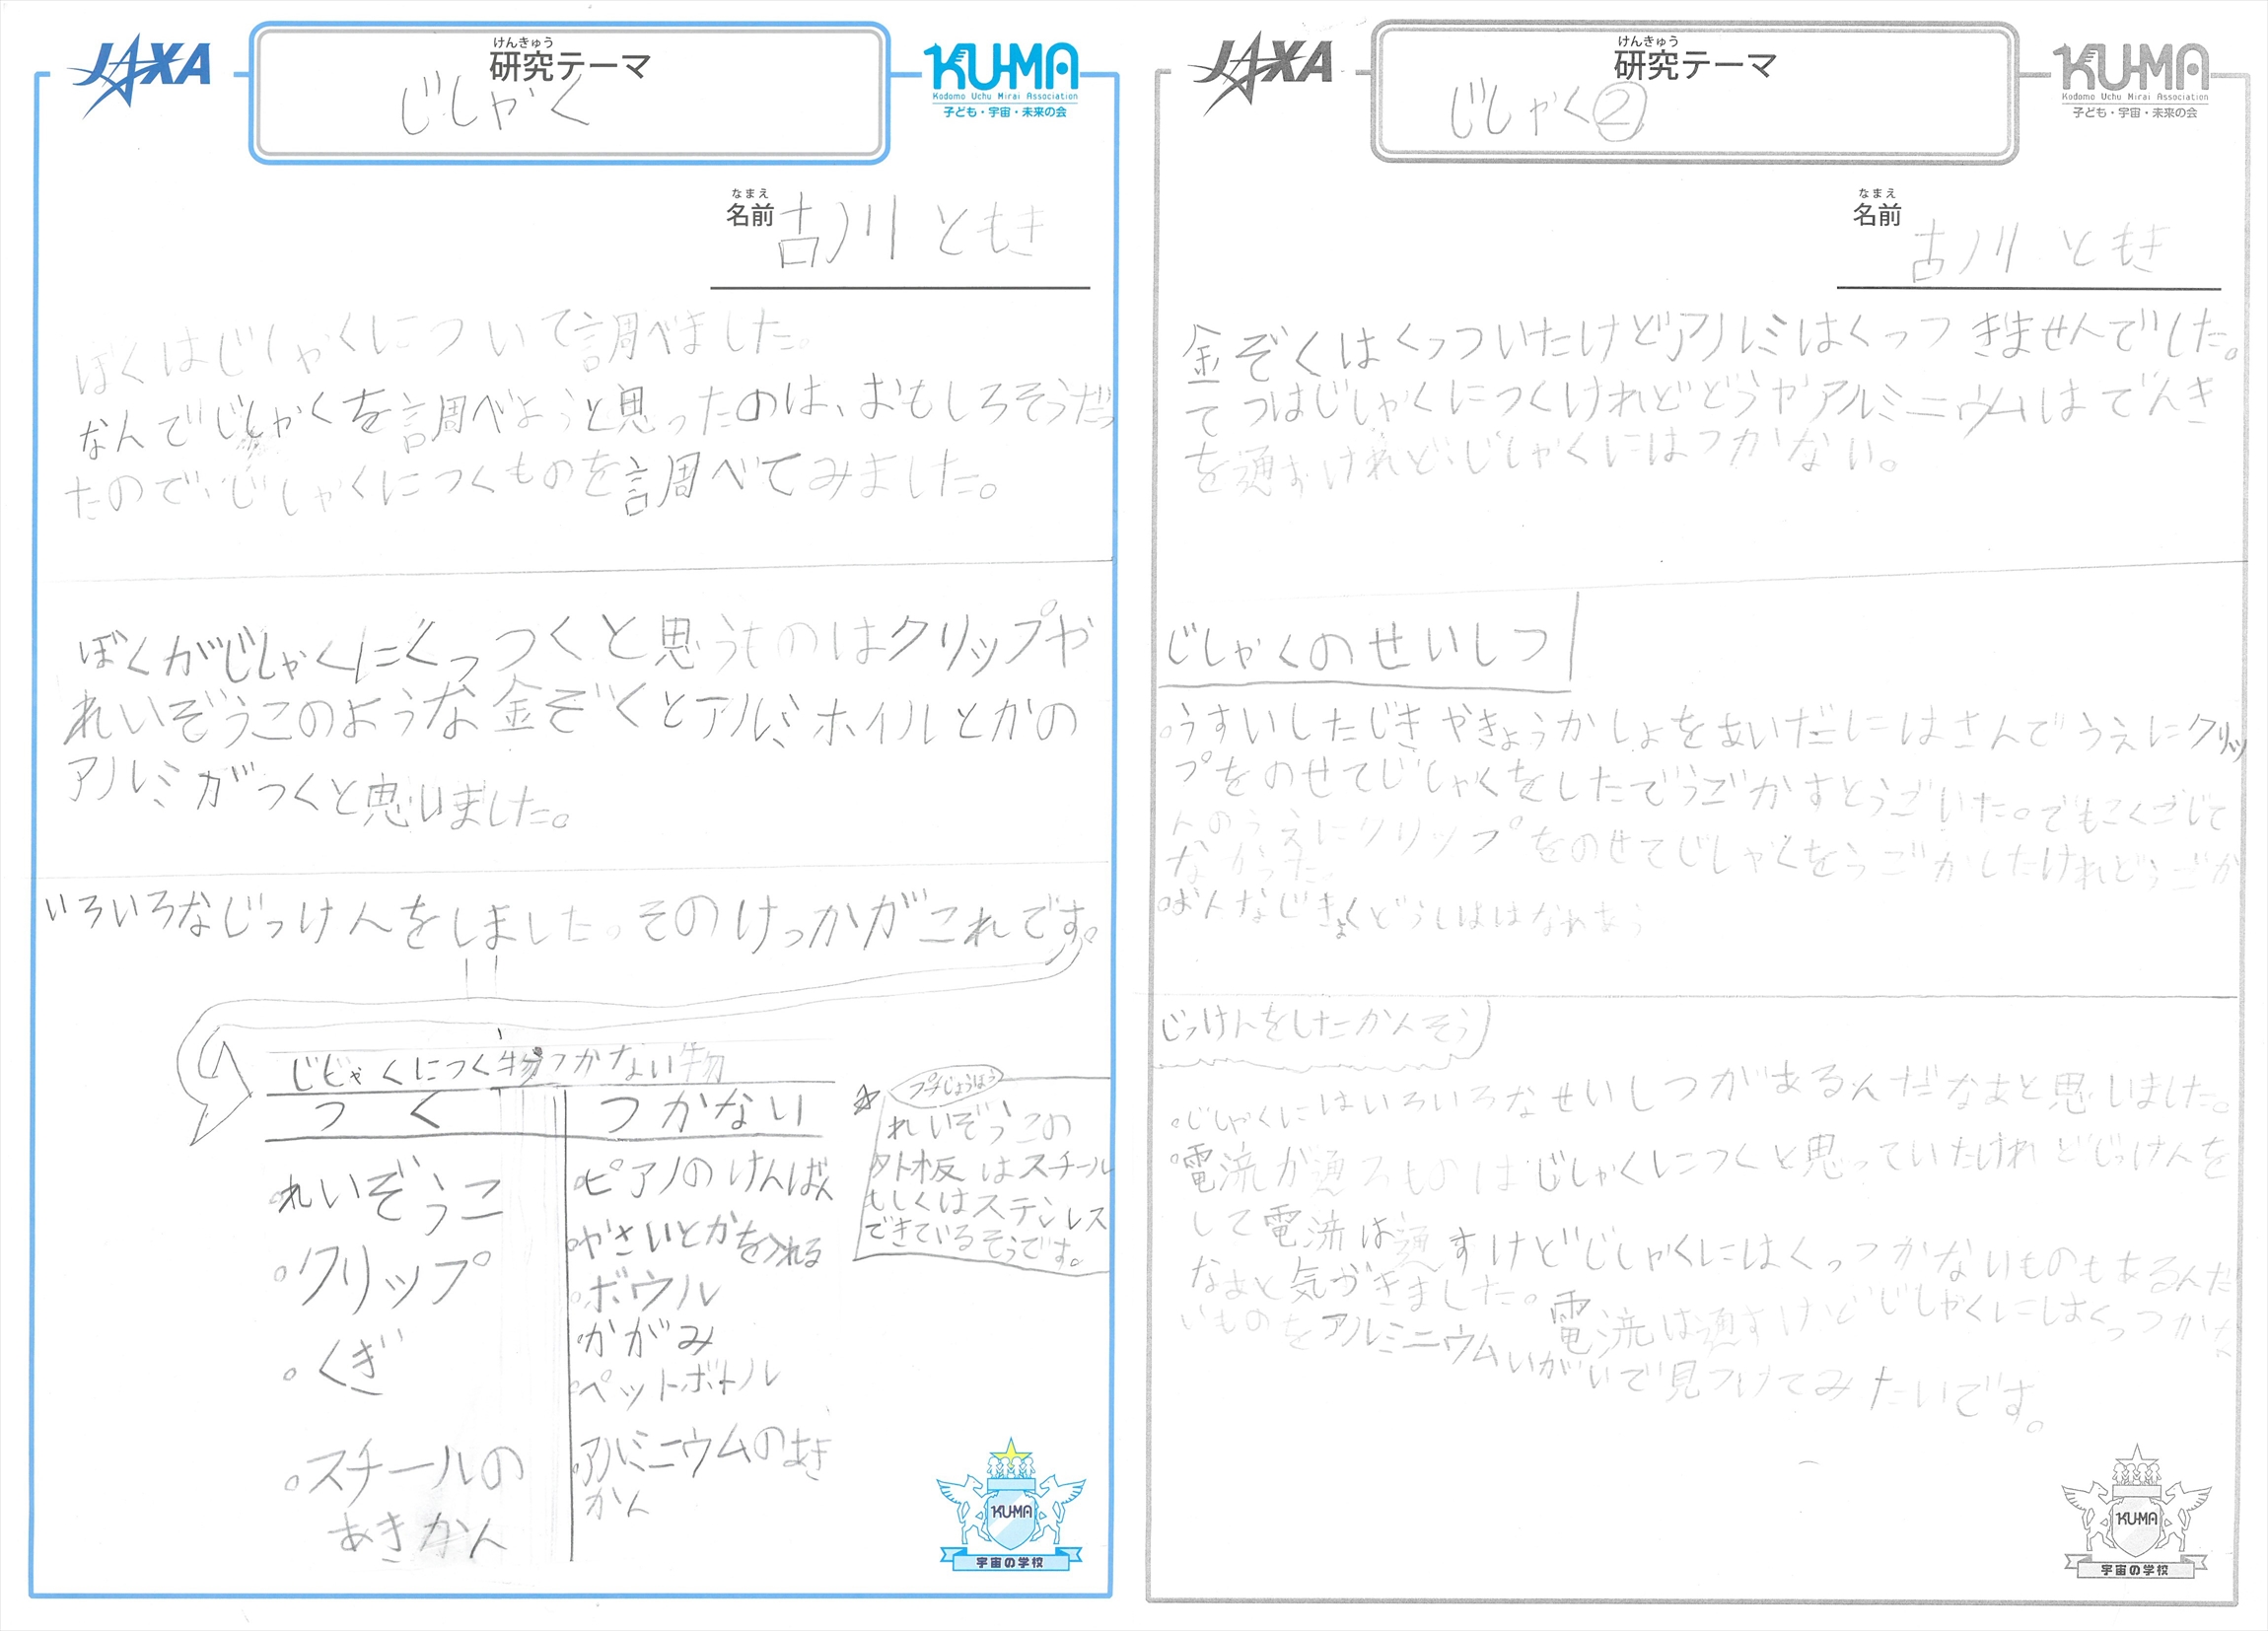 JAXA
けんきゅう
研究テーマ
じしゃく
KU-MA
Kodomo Uchu Mirai Association
子ども・宇宙・未来の会
なまえ
名前 古川 ともき
ぼくはじしゃくについて調べました。
なんでじしゃくを調べようと思ったのは、おもしろそうだっ
たので、じしゃくにつくものを調べてみました。
ぼくがじしゃくにくっつくと思うものはクリップや
れいぞうこのような金ぞくとアルミホイルとかの
アルミがつくと思いました。
いろいろなじっけんをしました。そのけっかがこれです。
じじゃくにつく物つかない物
つく
つかない
。れいぞうこ
。クリップ
。くぎ
。スチールの
あきかん
。ピアノのけんばん
。やさいとかを入れる
。ボウル
。かがみ
。ペットボトル
。アルミニウムのあき
かん
プチじょうほう
れいぞうこの
外板はスチール
もしくはステンレス
できているそうです。
KU-MA
宇宙の学校
JAXA
けんきゅう
研究テーマ
じしゃく②
KU-MA
Kodomo Uchu Mirai Association
子ども・宇宙・未来の会
なまえ
名前 古川 ともき
金ぞくはくっついたけどアルミはくっつぎませんでした。
てつはじしゃくにつくけれどどうやアルミニウムはでんき
を通すけれど、じしゃくにはつかない。
じしゃくのせいしつ
。うすいしたじきやきょうかしょをあいだにはさんでうえにクリッ
プをのせてじしゃくをしたでうごかすとうごいた。でもこくごじて
んのうえにクリップをのせてじしゃくをうごかしたけれどうごか
なかった。
。おんなじきょくどうしははなれあう
じっけんをしたかんそう
。じしゃくにはいろいろなせいしつがあるんだなぁと思いました。
。電流が通るものはじしゃくにつくと思っていたけれどじっけんを
して電流は通すけどじしゃくにはくっつかないものもあるんだ
なあと気づきました。電流は通すけどじしゃくにはくっつかな
いものをアルミニウムいがいで見つけてみたいです。
KU-MA
宇宙の学校